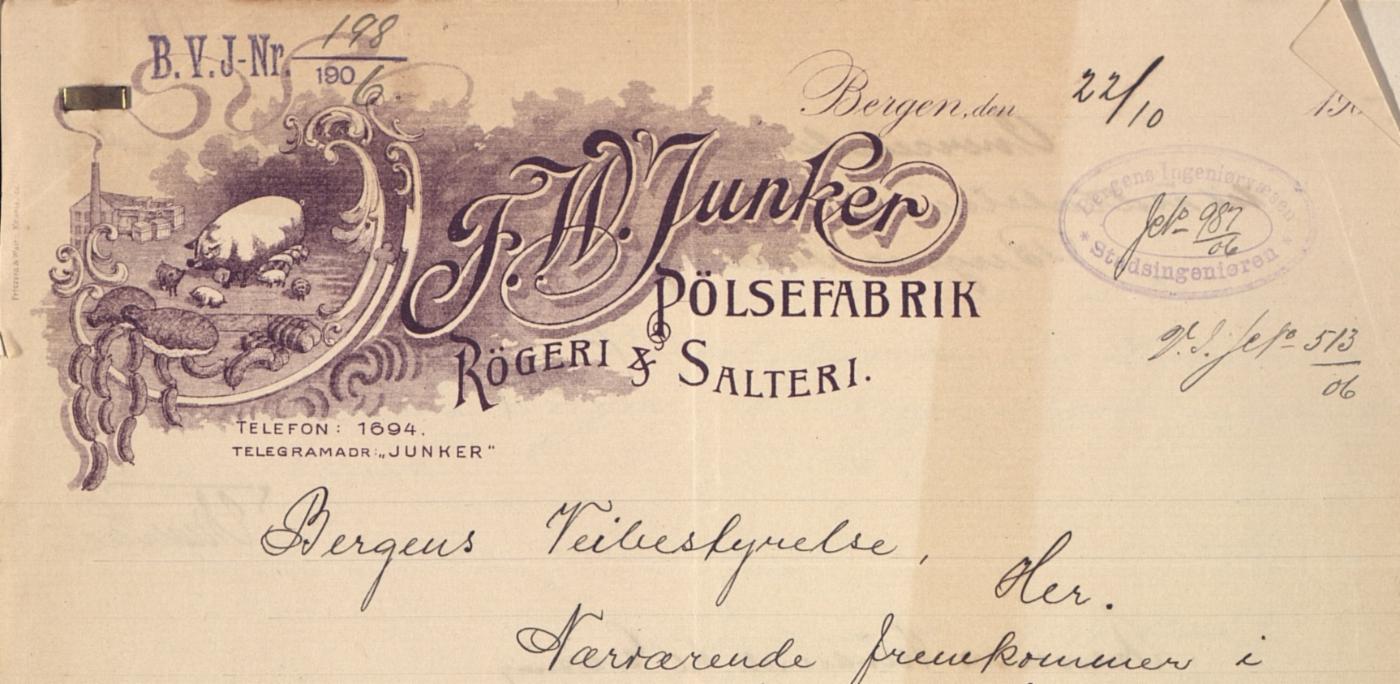 B.V.J-Nr. 198
1906.
Bergen, den 22/10 190
F.W. Junker
PÖLSEFABRIK
RÖGERI & SALTERI.
TELEFON: 1694.
TELEGRAMADR: „JUNKER"
Bergens Ingeniørvæsen
987
06
* Stadsingeniøren *
513
06
Bergens Veibestyrelse,
Her.
Nærværende fremkommer i